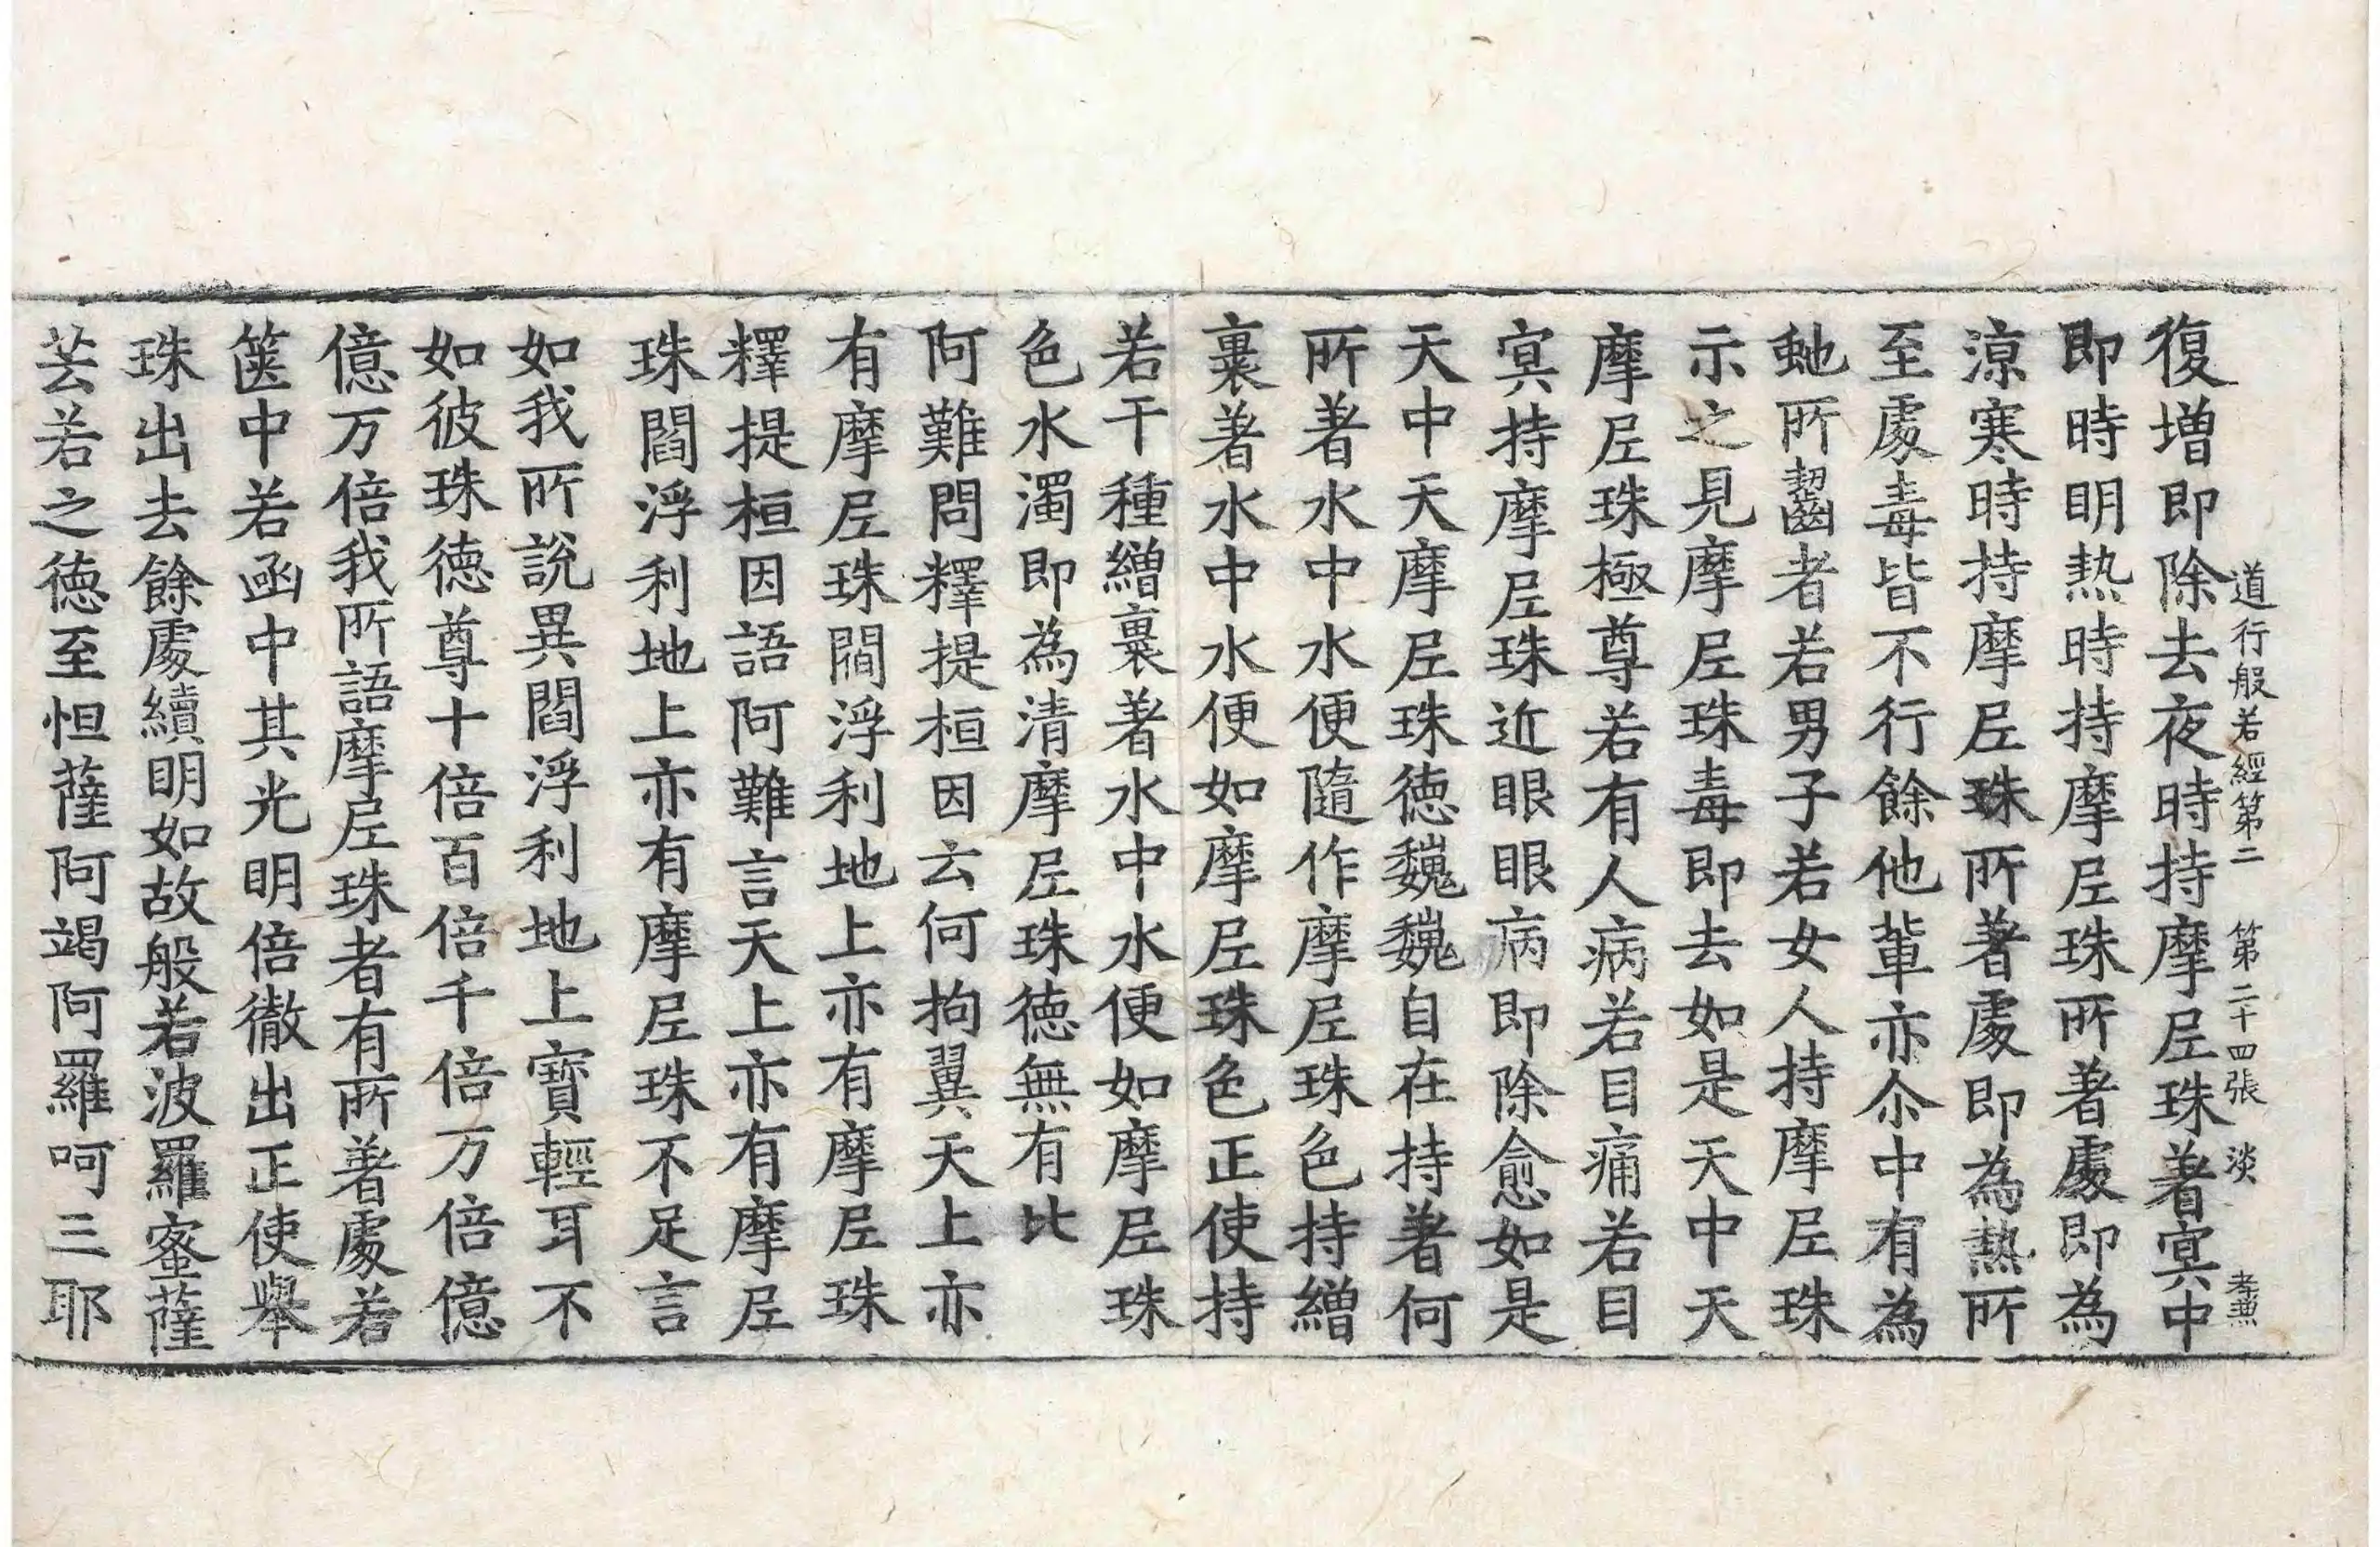 道行般若經第二　第二十四張　淡　孝兼
復增即除去夜時持摩尼珠著冥中
即時明熱時持摩尼珠所著處即為
涼寒時持摩尼珠所著處即為熱所
至處毒皆不行餘他輩亦尒中有為
虵所齧者若男子若女人持摩尼珠
示之見摩尼珠毒即去如是天中天
摩尼珠極尊若有人病若目痛若目
冥持摩尼珠近眼眼病即除愈如是
天中天摩尼珠德巍巍自在持著何
所著水中水便隨作摩尼珠色持繒
裹著水中水便如摩尼珠色正使持
若干種繒裹著水中水便如摩尼珠
色水濁即為清摩尼珠德無有比
阿難問釋提桓因云何拘翼天上亦
有摩尼珠閻浮利地上亦有摩尼珠
釋提桓因語阿難言天上亦有摩尼
珠閻浮利地上亦有摩尼珠不足言
如我所說異閻浮利地上寶輕耳不
如彼珠德尊十倍百倍千倍万倍億
億万倍我所語摩尼珠者有所著處若
篋中若函中其光明倍徹出正使舉
珠出去餘處續明如故般若波羅蜜薩
芸若之德至怛薩阿竭阿羅呵三耶